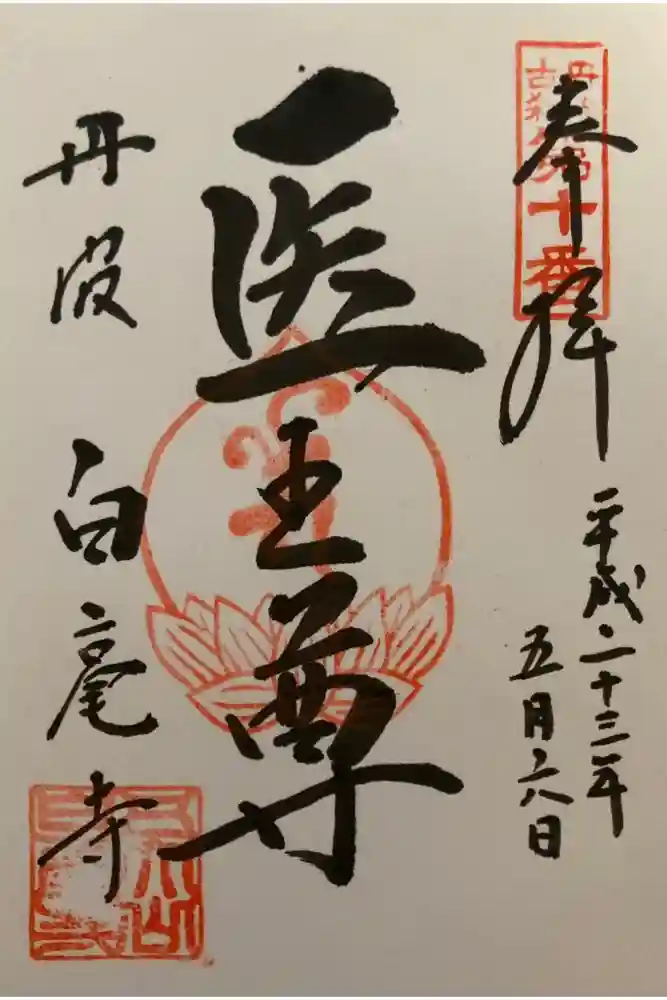 丹波
古刹
第十番
奉拝
平成二十三年
五月六日
医王尊
丹波 白毫寺